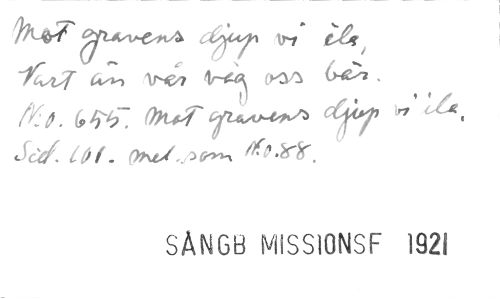 Mot gravens djup vi ila,
Vart än vår väg oss bär.
N:o. 655. Mot gravens djup vi ila.
Sid. 101. mel. som N:o. 88.
SÅNGB MISSIONSF 1921